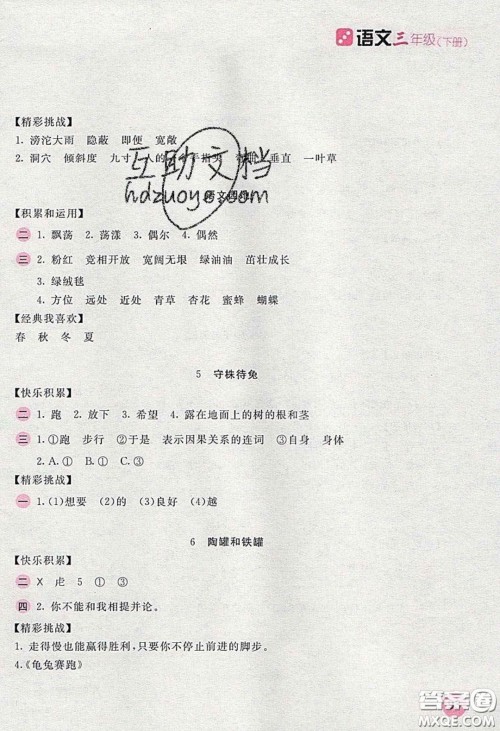 语文三年级(下册)
【精彩挑战】
1. 滂沱大雨 隐蔽 即便 宽敞
2. 洞穴 倾斜度 九寸 人的 垂直 一叶草
互助文档
hdzuoye.com
【积累和运用】
二 1. 飘荡 2. 荡漾 3. 偶尔 4. 偶然
三 2. 粉红 竞相开放 宽阔无垠 绿油油 茁壮成长
3. 绿绒毯
4. 方位 远处 近处 青草 杏花 蜜蜂 蝴蝶
【经典我喜欢】
春 秋 冬 夏
5 守株待兔
【快乐积累】
二 1. 跑 2. 放下 3. 希望 4. 露在地面上的树的根和茎
三 1. ①跑 步行 ②于是 表示因果关系的连词 ③自身 身体
2. A. ① B. ① C. ③
【精彩挑战】
一 1. (1)想要 (2)的 (3)良好 (4)越
6 陶罐和铁罐
【快乐积累】
二 X 虍 5 ① ③
四 2. 你不能和我相提并论。
【精彩挑战】
1. 走得慢也能赢得胜利,只要你不停止前进的脚步。
4.《龟兔赛跑》
答案圈
MXQE.COM